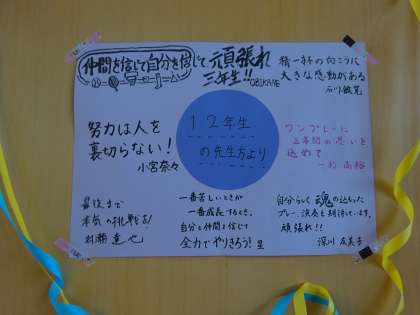 仲間を信じて自分を信じて 頑張れ
三年生!! OBIKANE
精一杯の向こうに
大きな感動がある
石川敏晃
努力は人を
裏切らない!
小宮奈々
12年生
の先生方より
ワンプレーに
三年間の思いを
込めて
最後まで
本気の挑戦を!
村瀬 達也
一番苦しいときが
一番成長するとき。
自分と仲間を信じて
全力でやりきろう!
自分らしく魂の込もった
プレー、演奏を期待しています。
頑張れ!!
深川 友美子